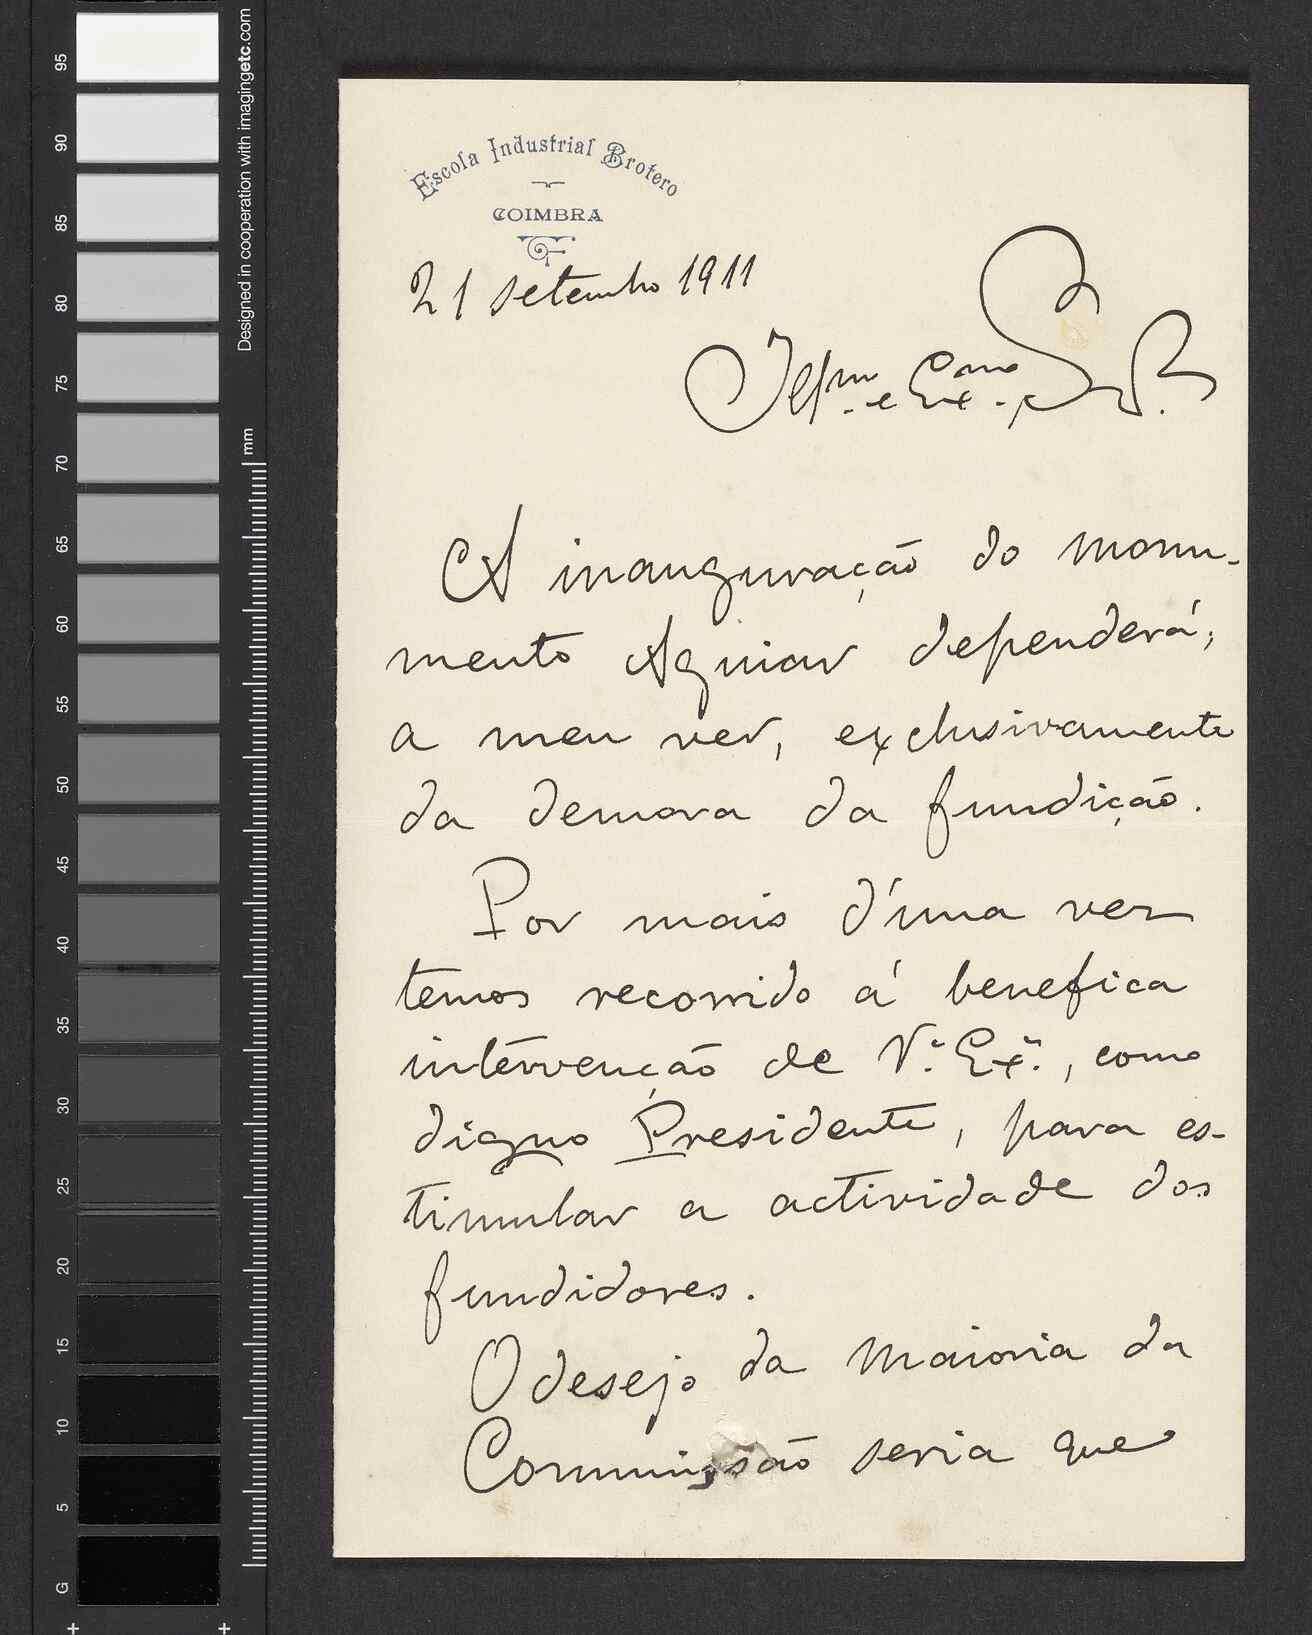 Escola Industrial Brotero
COIMBRA
21 setembro 1911
Illmo. e Exmo. Sr.
A inauguração do monu-
mento Aguiar dependerá,
a meu ver, exclusivamente
da demora da fundição.
Por mais d'uma vez
temos recorrido á benefica
intervenção de V.ª Ex.ª, como
digno Presidente, para es-
timular a actividade dos
fundidores.
O desejo da maioria da
Commissão seria que
Designed in cooperation with imagingetc.com
mm
95
90
85
80
75
70
65
60
55
50
45
40
35
30
25
20
15
10
5
G